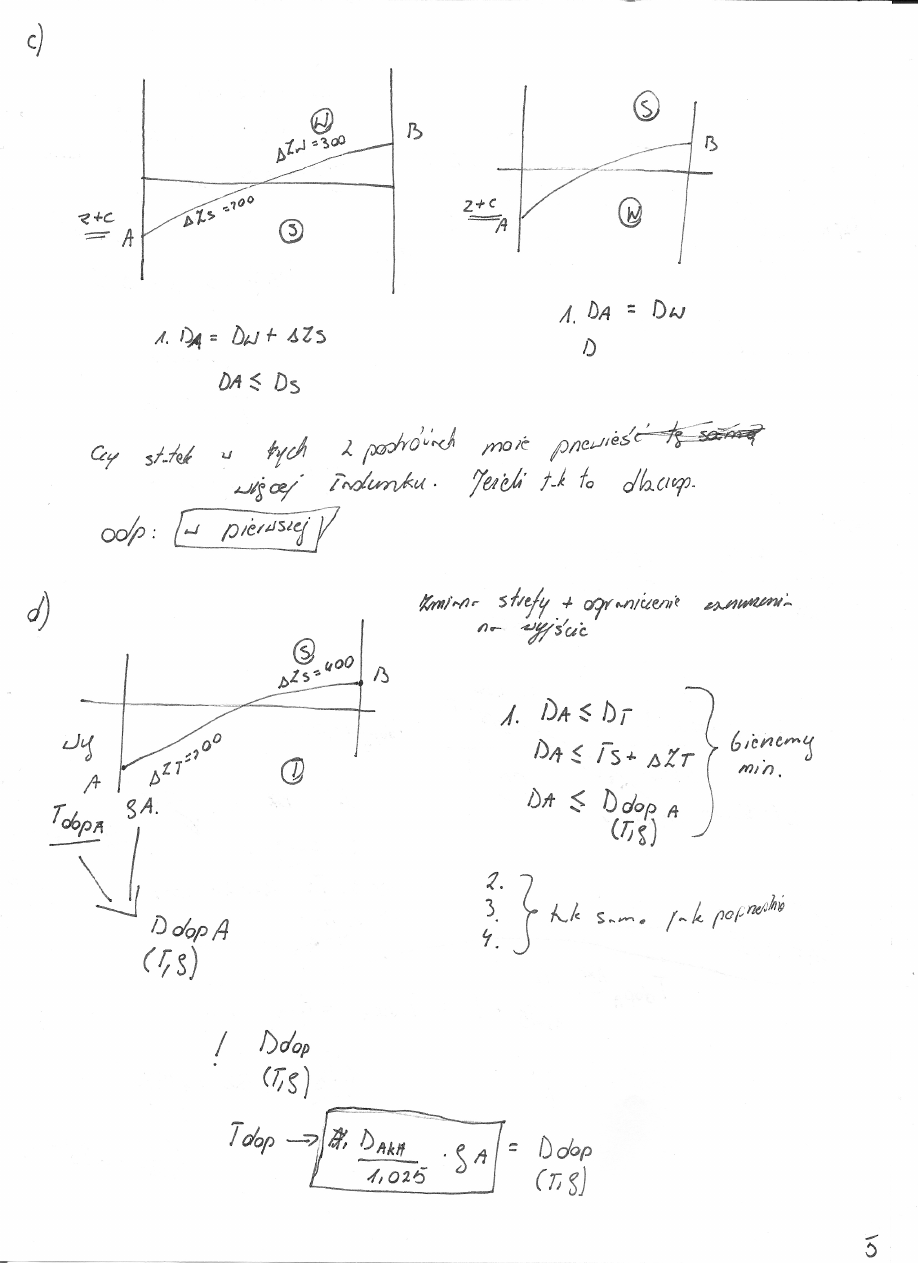 c)
W
ΔZW = 300
B
ΔZS = 200
Z+C
A
S
S
B
Z+C
A
W
1. DA = DW + ΔZS
DA ≤ DS
1. DA = DW
D
Czy statek w tych 2 podróżach może przewieść tę samą
więcej ładunku. Jeżeli tak to dlaczego.
odp: w pierwszej
d)
Zmiana strefy + ograniczenie zanurzenia
na wyjście
S
ΔZS = 400
B
wy
A
ΔZT = 200
T
TdopA
ρA.
DdopA
(T,ρ)
1. DA ≤ DT
DA ≤ TS + ΔZT
DA ≤ Ddop A
(T,ρ)
bierzemy
min.
2.
3.
4.
tak samo jak poprzednio
! Ddop
(T,ρ)
Tdop → DAKA / 1,025 · ρA = Ddop
(T,ρ)
5